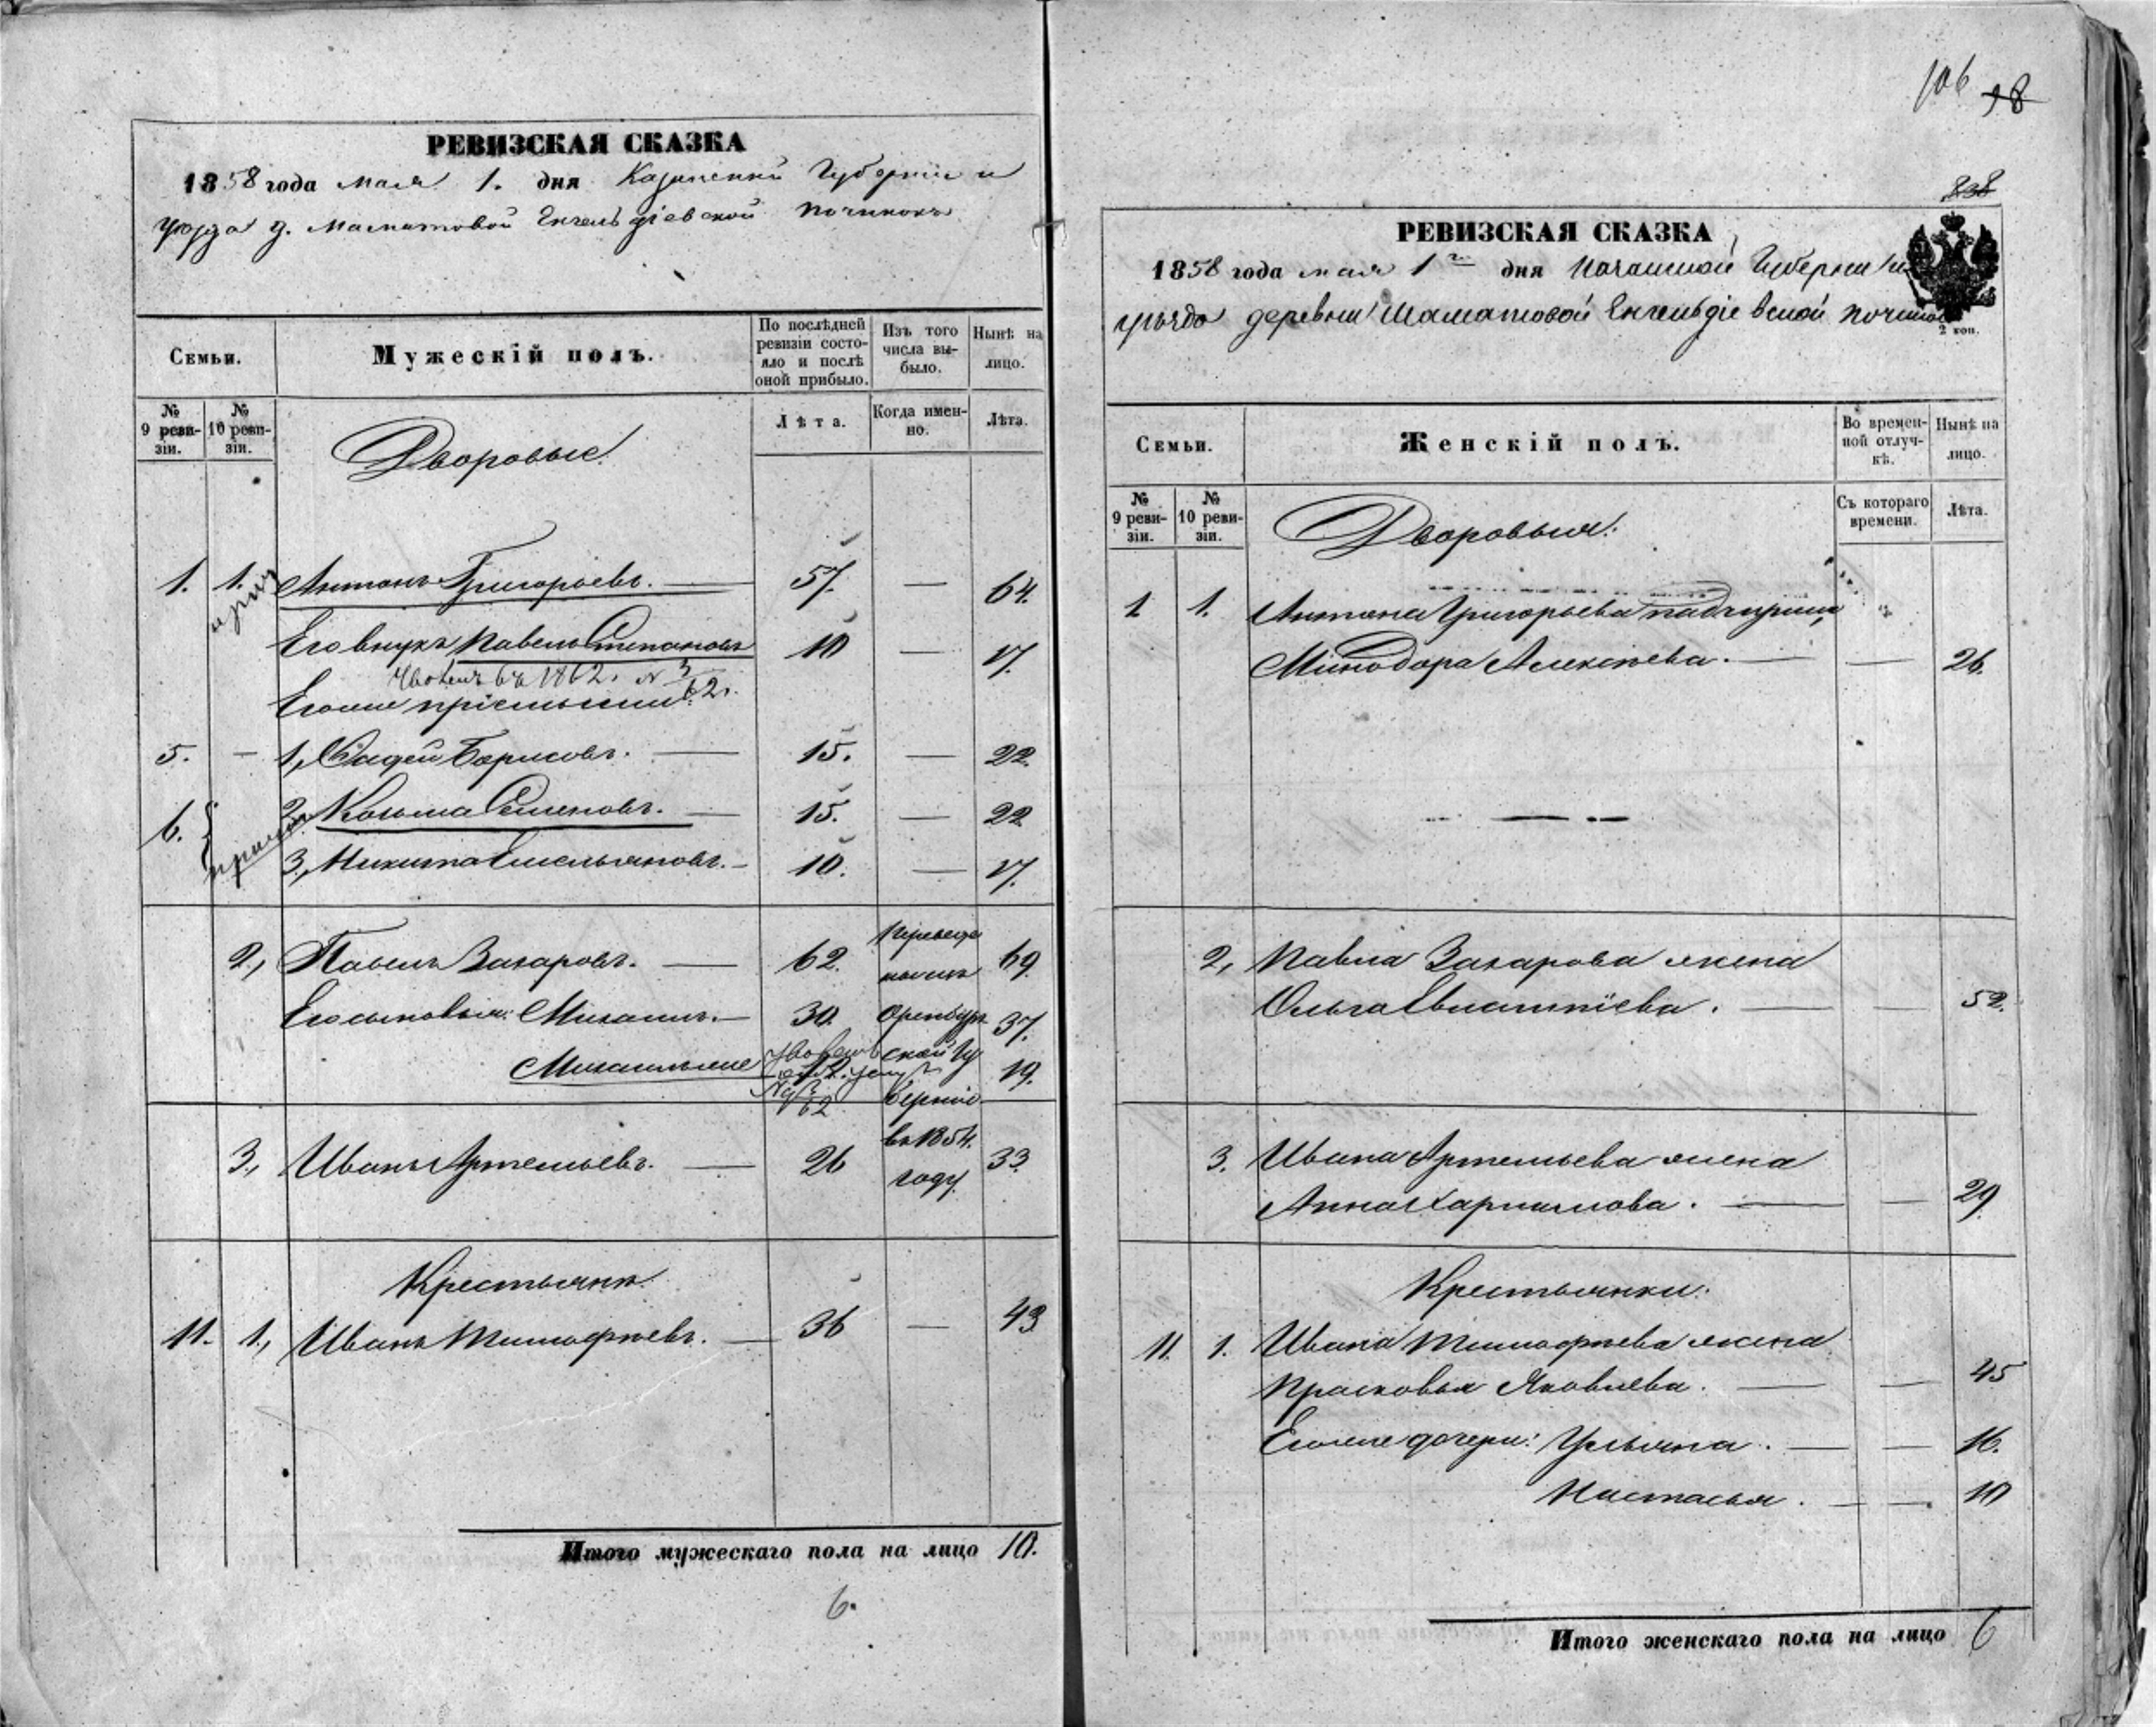 РЕВИЗСКАЯ СКАЗКА
1858 года мая 1. дня Казанской Губерніи и
уѣзда д. Маматовой Енгельдіевской починокъ
Семьи.
Мужескій полъ.
По послѣдней ревизіи состояло и послѣ оной прибыло.
Изъ того числа выбыло.
Нынѣ на лицо.
№ 9 ревизіи.
№ 10 ревизіи.
Лѣта.
Когда именно.
Лѣта.
Дворовые.
1. 1. Антонъ Григорьевъ. — 57. — 64.
Его внукъ Павелъ Степановъ 10 — 17.
Уволенъ въ 1862 г. №
Егоже пріемыши:
5. — 1, Фадей Борисовъ. — 15. — 22.
6. 2, Козьма Семеновъ. — 15. — 22
3, Никита Емельяновъ. — 10. — 17.
2, Павелъ Захаровъ. — 62. Переведены въ 69.
Его сыновья: Михаилъ. — 30. Оренбург 37.
Михаилъ же ской Гу 19.
берніе
3, Иванъ Артемьевъ. — 26 въ 1854. году 33.
Крестьяне
11. 1, Иванъ Тимофѣевъ. — 36 — 43
Итого мужескаго пола на лицо 10.
6.
106 98
838
РЕВИЗСКАЯ СКАЗКА
1858 года мая 1го дня Казанской Губерніи и
уѣзда деревни Маматовой Енгельдіевской починокъ
2 коп.
Семьи.
Женскій полъ.
Во временной отлучкѣ.
Нынѣ на лицо.
№ 9 ревизіи.
№ 10 ревизіи.
Съ котораго времени.
Лѣта.
Дворовыя.
1 1. Антона Григорьева падчерица,
Минодора Алексѣева. — — 26.
2, Павла Захарова жена
Ольга Евлампіева. — — 52.
3. Ивана Артемьева жена
Анна Харламова. — — 29
Крестьянки.
11. 1. Ивана Тимофѣева жена
Прасковья Яковлева. — — 45
Егоже дочери: Ульяна. — — 16.
Настасья. — — 10
Итого женскаго пола на лицо 6